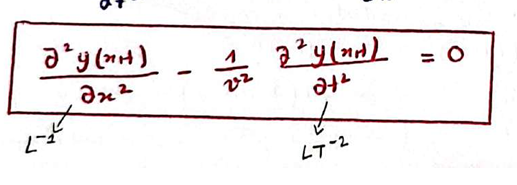 ∂²y(x,t)/∂x² - 1/v² ∂²y(x,t)/∂t² = 0
L⁻¹ LT⁻²